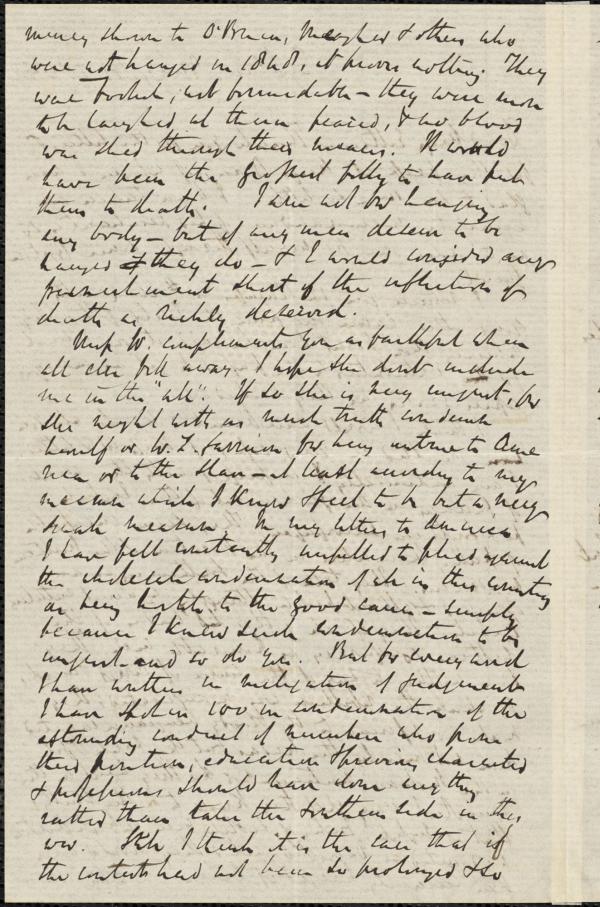 mercy shown to O'Brien, Meagher & others who
were not hanged in 1848, it proves nothing. They
were foolish, not formidable – they were more
to be laughed at than feared, & no blood
was shed through their means. It would
have been the grossest folly to have put
them to death. I am not for hanging
any body – but if any men deserve to be
hanged they do – & I would consider any
punishment short of the infliction of
death as richly deserved.
Miss W. compliments you as faithful when
all else fell away. I hope she don't include
me in the "all". If so she is very unjust, for
she might with as much truth condemn
herself or W. L. Garrison for being untrue to Ame
rica or to the slave – at least according to my
measure which I know & feel to be but a very
small measure. In my letters to America
I have felt constantly impelled to plead against
the wholesale condemnation of all in this country
as being hostile to the good cause – simply
because I knew such condemnation to be
unjust – and so do you. But for every word
I have written in mitigation of judgement
I have spoken 100 in condemnation of the
astounding conduct of numbers who from
their position, education & previous character
& professions should have done any thing
rather than take the Southern side in this
war. Still I think it is the case that if
the contest had not been so prolonged & so